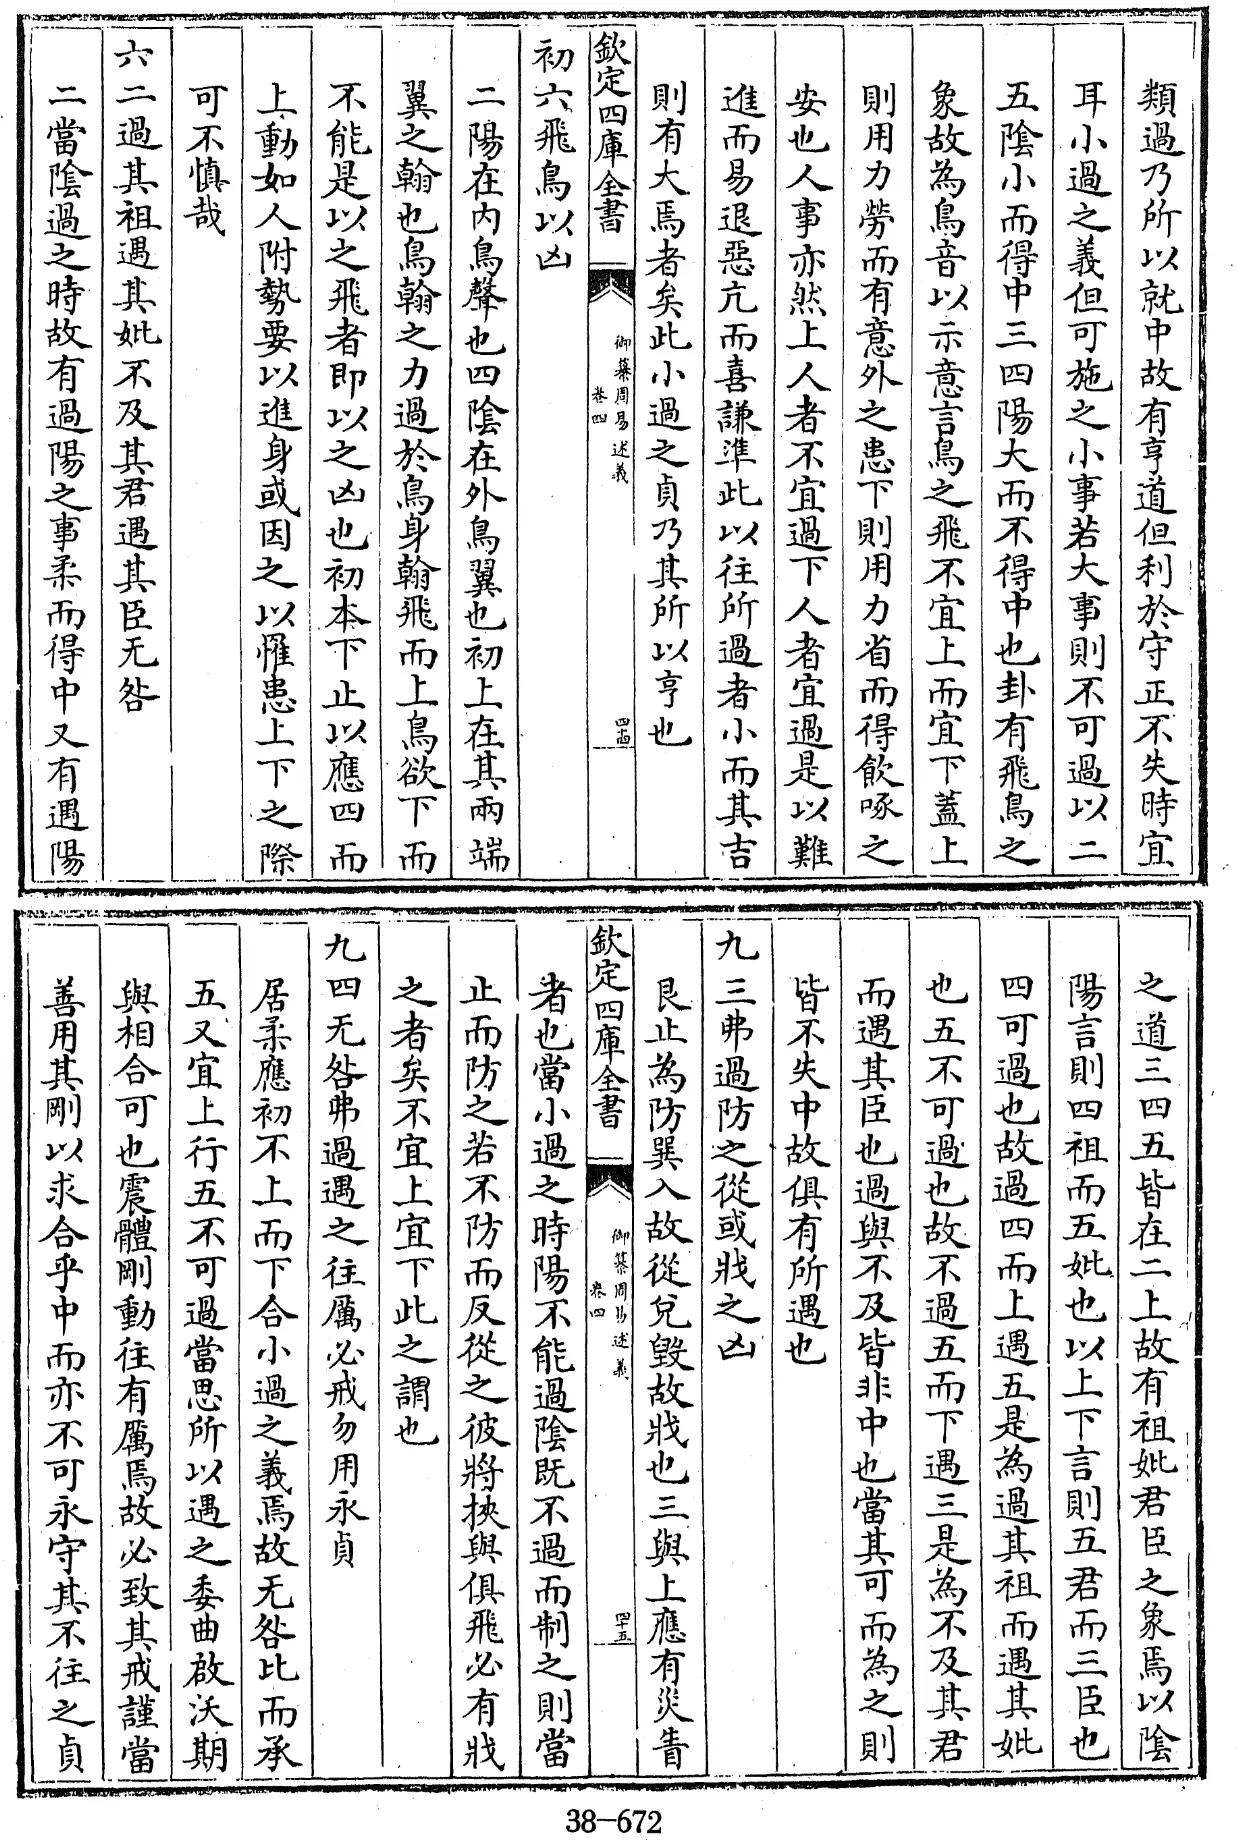 類過乃所以就中故有亨道但利於守正不失時宜
耳小過之義但可施之小事若大事則不可過以二
五陰小而得中三四陽大而不得中也卦有飛鳥之
象故為鳥音以示意言鳥之飛不宜上而宜下蓋上
則用力勞而有意外之患下則用力省而得飲啄之
安也人事亦然上人者不宜過下人者宜過是以難
進而易退惡亢而喜謙準此以往所過者小而其吉
則有大焉者矣此小過之貞乃其所以亨也
欽定四庫全書
御纂周易述義
卷四
四十四
初六飛鳥以凶
二陽在内鳥聲也四陰在外鳥翼也初上在其兩端
翼之翰也鳥翰之力過於鳥身翰飛而上鳥欲下而
不能是以之飛者即以之凶也初本下止以應四而
上動如人附勢要以進身或因之以懼患上下之際
可不慎哉
六二過其祖遇其妣不及其君遇其臣无咎
二當陰過之時故有過陽之事柔而得中又有遇陽
之道三四五皆在二上故有祖妣君臣之象焉以陰
陽言則四祖而五妣也以上下言則五君而三臣也
四可過也故過四而上遇五是為過其祖而遇其妣
也五不可過也故不過五而下遇三是為不及其君
而遇其臣也過與不及皆非中也當其可而為之則
皆不失中故俱有所遇也
九三弗過防之從或戕之凶
艮止為防巽入故從兌毀故戕也三與上應有災眚
欽定四庫全書
御纂周易述義
卷四
四十五
者也當小過之時陽不能過陰既不過而制之則當
止而防之若不防而反從之彼將挾與俱飛必有戕
之者矣不宜上宜下此之謂也
九四无咎弗過遇之往厲必戒勿用永貞
居柔應初不上而下合小過之義焉故无咎比而承
五又宜上行五不可過當思所以遇之委曲啟沃期
與相合可也震體剛動往有厲焉故必致其戒謹當
善用其剛以求合乎中而亦不可永守其不往之貞
38-672